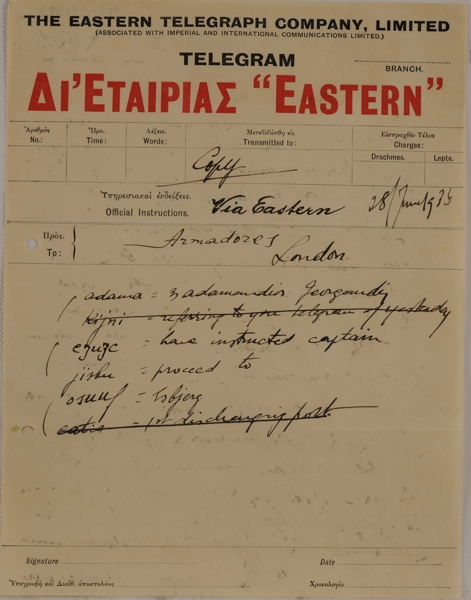 THE EASTERN TELEGRAPH COMPANY, LIMITED
(ASSOCIATED WITH IMPERIAL AND INTERNATIONAL COMMUNICATIONS LIMITED.)
TELEGRAM
BRANCH.
ΔΙ'ΕΤΑΙΡΙΑΣ "EASTERN"
Ἀριθμὸς Ὥρα. Λέξεις. Μετεδιδάσθη εἰς Εἰσπραχθὲν Τέλος
No.: Time: Words: Transmitted to: Charges:
Drachmes. Lepta.
Copy
Ὑπηρεσιακαὶ ἐνδείξεις.
Official Instructions. Via Eastern 28/June/935
Πρὸς.
To: Armadores
London
adama = Georgandis
- referring to your telegram of yesterday
ejuje = have instructed captain
jisbu = proceed to
= Esbjerg
= 1st discharging port
Signature Date
Ὑπογραφὴ καὶ Διεύθ. ἀποστολέως Χρονολογία